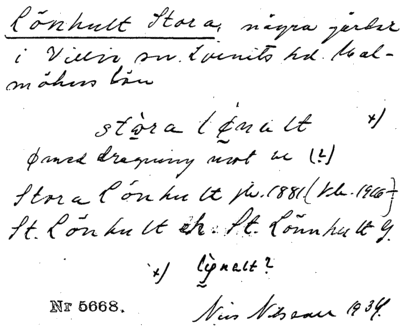 Lönhult Stora, några gårdar
i Villie sn. Ljunits hd. Mal-
möhus län
stòra lø̀nalt x)
ø med dragning mot œ (?)
Stora Lönhult jb. 1881 (tr. 1926)
St. Lönhult ek. St. Lönnhult G.
x) lø̀nalt?
Nr 5668. Nils Nilsson 1934.